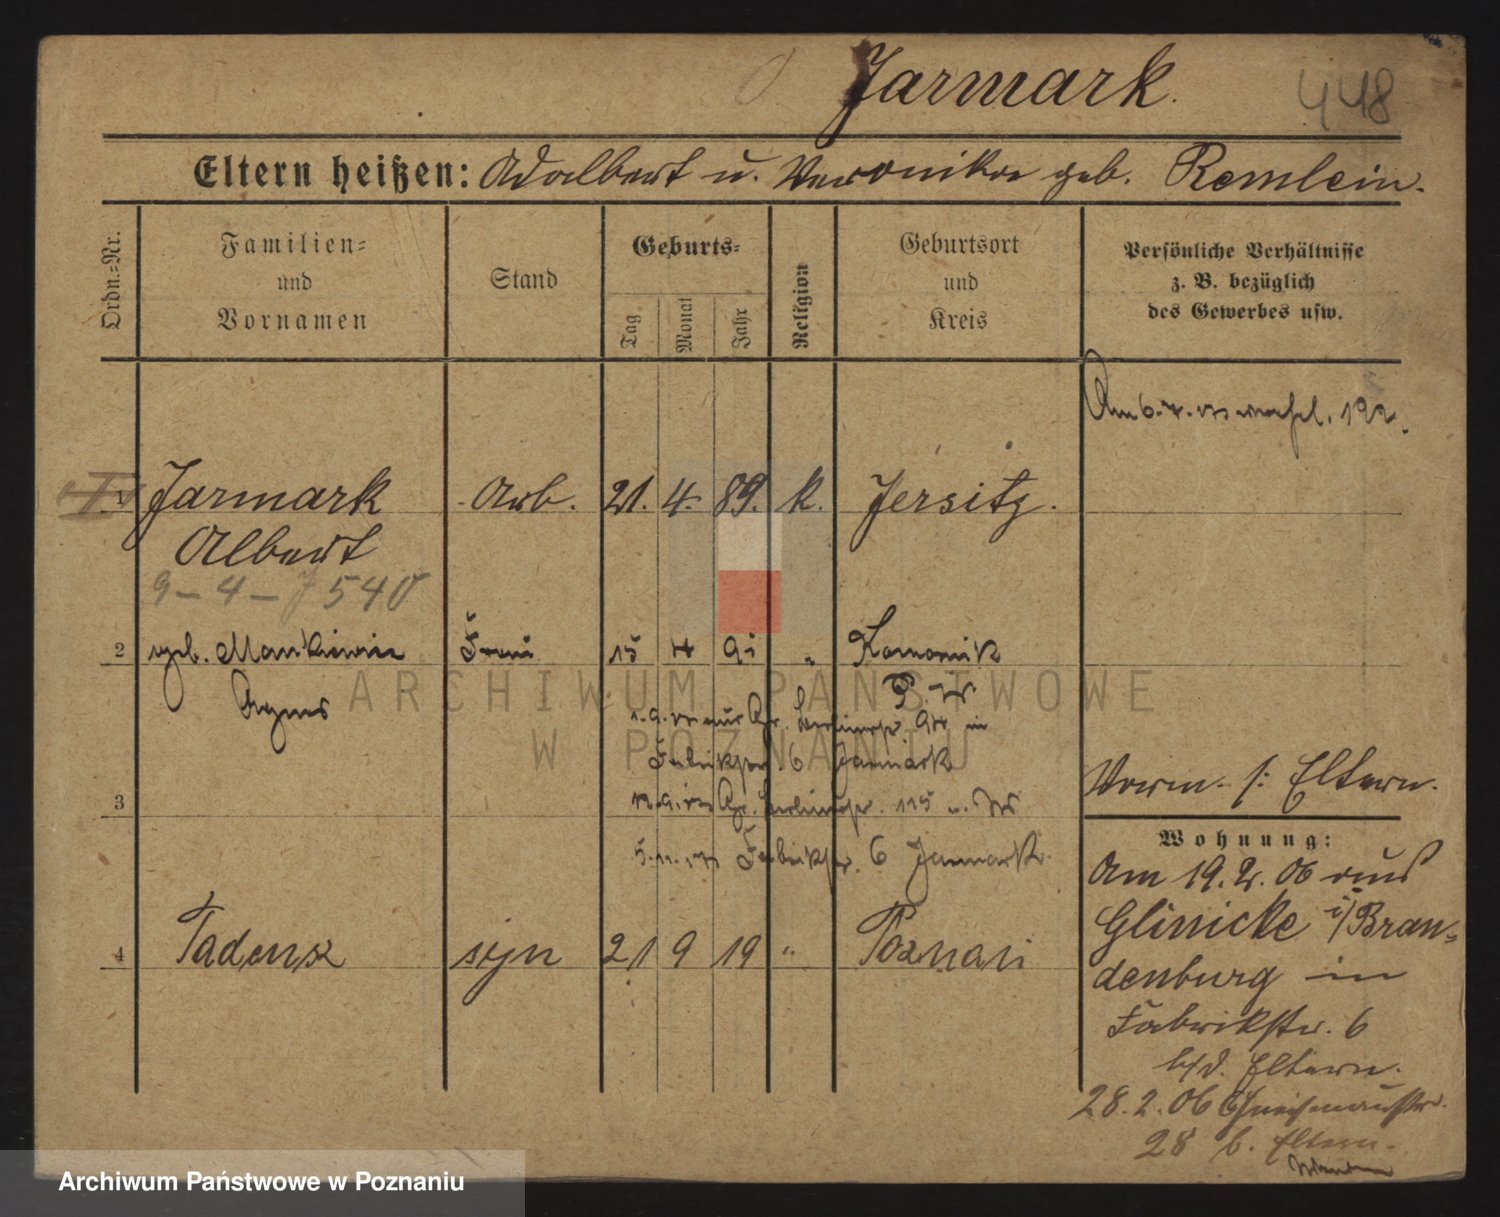 Jarmark.
448
Eltern heißen: Adalbert u. Veronika geb. Remlein.
Ordn.=Nr.
Familien=
und
Vornamen
Stand
Geburts=
Tag
Monat
Jahr
Religion
Geburtsort
und
Kreis
Persönliche Verhältnisse
z. B. bezüglich
des Gewerbes usw.
1 Jarmark Arb. 21. 4. 89. k. Jersitz.
Albert
9-4-J540
2 geb. Mankiewic Frau 15 4 91 " Komornik
Agnes P. W
Fabrikstr. 6 Jarmark
3
Fabrikstr. 6 Jarmark
4 Tadeusz syn 21 9 19 " Poznań
Vorm. s: Eltern.
Wohnung:
Am 19.2.06 aus
Glinicke i/Bran=
denburg in
Fabrikstr. 6
b/d. Eltern.
28.2.06 Gneisenaustr.
28 b. Eltern.
ARCHIWUM PAŃSTWOWE
W POZNANIU
Archiwum Państwowe w Poznaniu